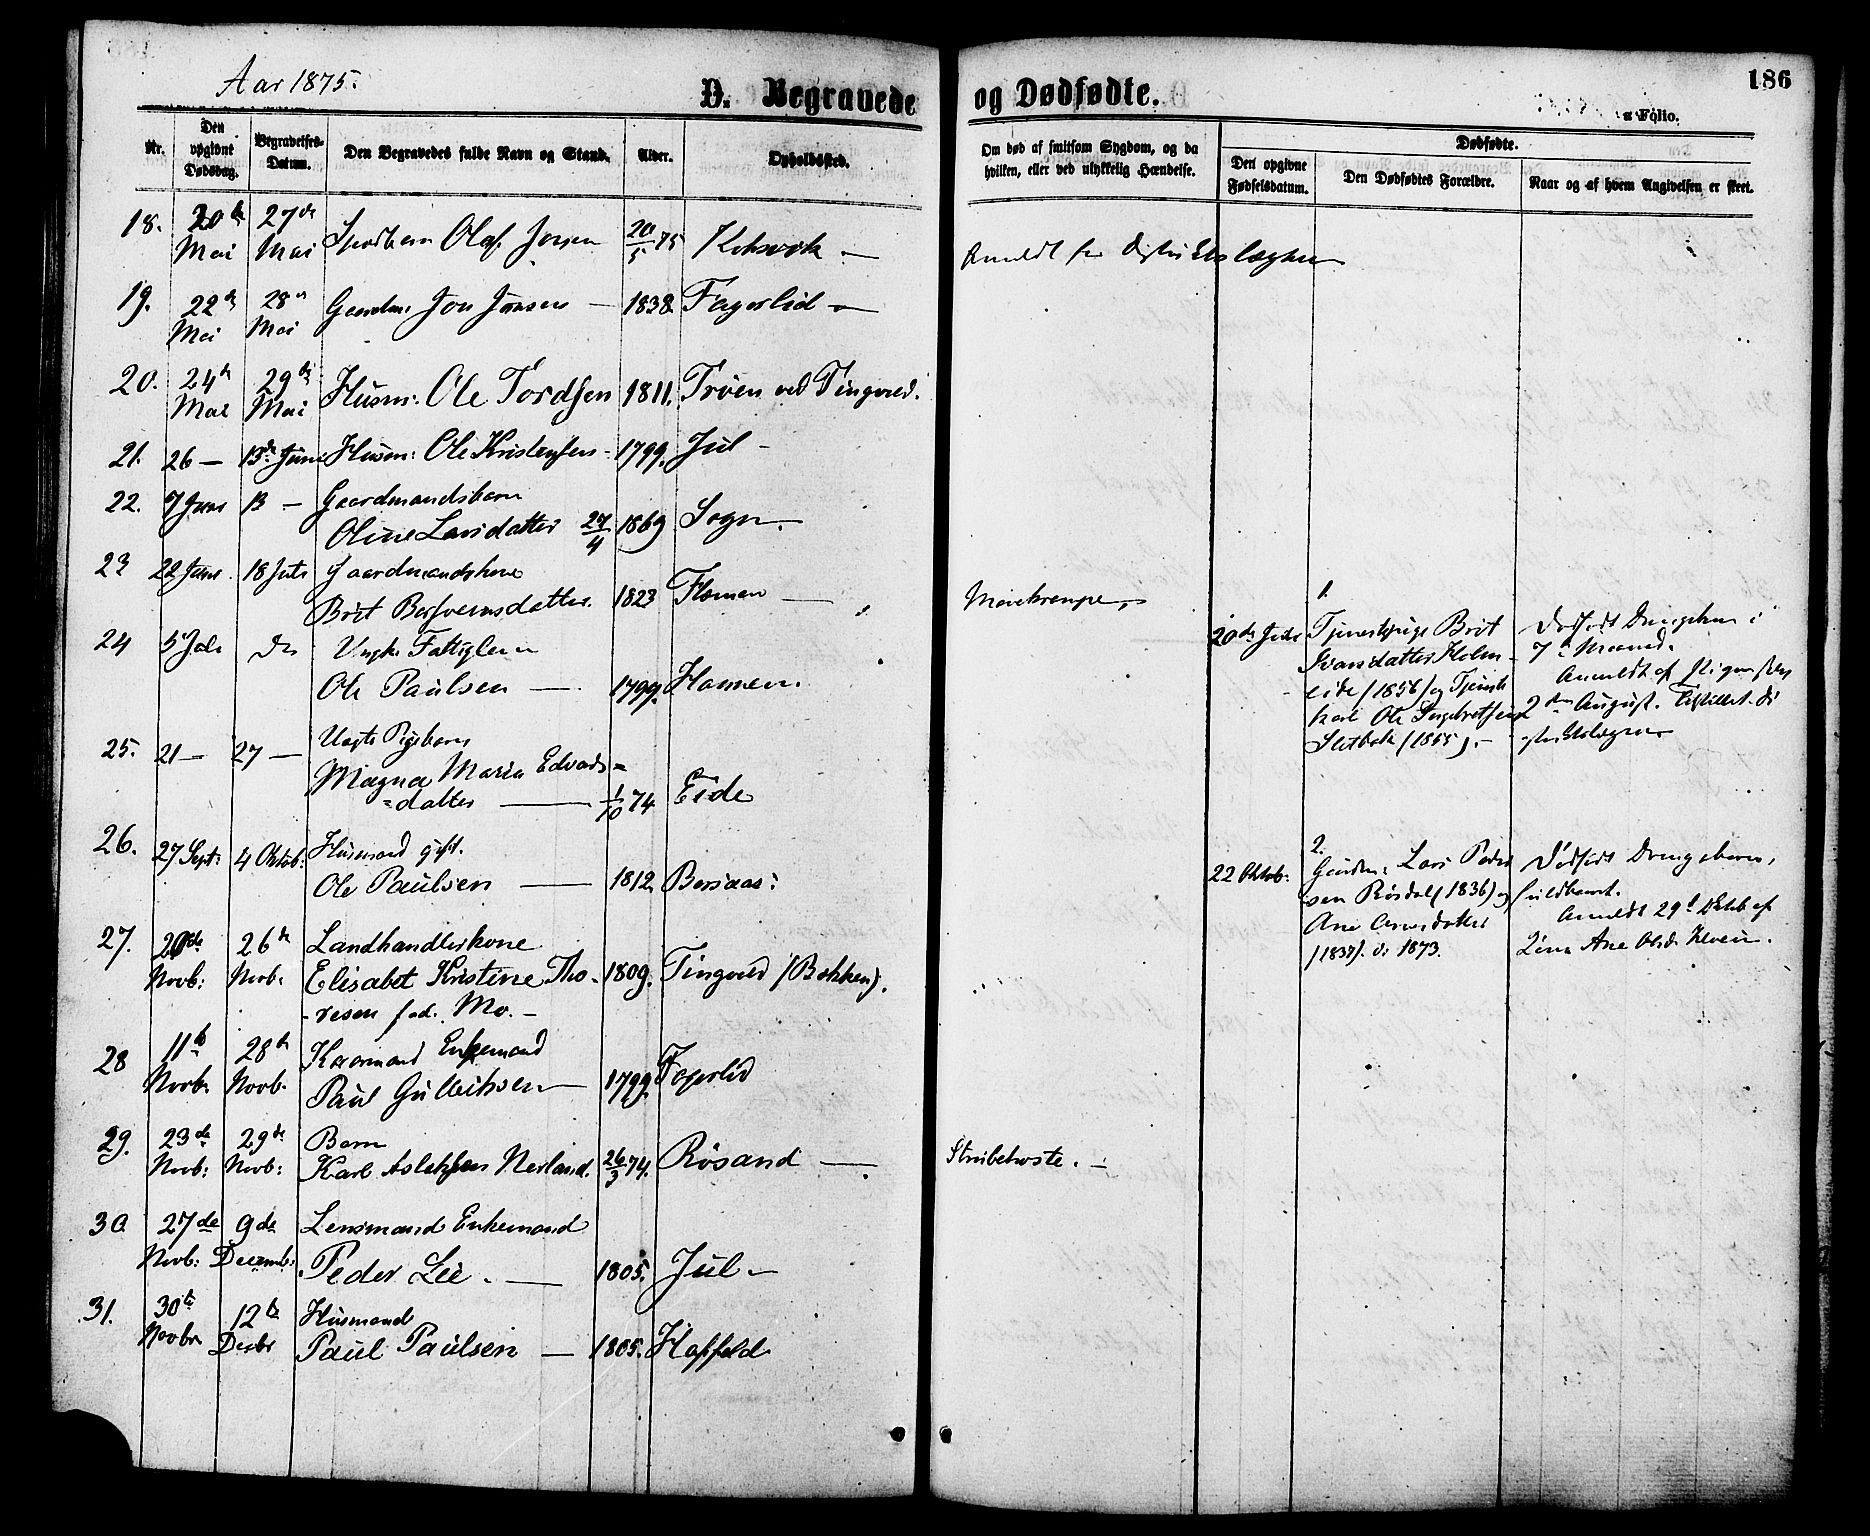 Aar 1875.
D. Begravede og Dødfødte.
186
Folio.
Nr.
Den opgivne Dødsdag.
Begravelses-Datum.
Den Begravedes fulde Navn og Stand.
Alder.
Opholdssted.
Om død af smitsom Sygdom, og da hvilken, eller ved ulykkelig Hændelse.
Dødfødte.
Den opgivne Fødselsdatum.
Den Dødfødtes Forældre.
Naar og af hvem Angivelsen er skeet.
18. 20de Mai 27de Mai Spædbarn Olaf 20/5 75
19. 22de Mai 28 Mai Gaardm: Jon Jonsen 1838. Fagerlid
20. 24de Mai 29de Mai Husm: Ole Tordsen 1811. Trøen ved Tingvold.
21. 26 — 13de Juni Husm: Ole Kristensen 1799. Jul
22. 7 Juni 13 — Gaardmandsbarn
Oline Larsdatter 27/4 1869 Sogn.
23 22 Juni 18 Juli Gaardmandskone
Brit 1823 Flemen
24 5 Juli Do
Ole Paulsen — 1799. Hamnen.
25. 21 — 27 — Uægte Pigebarn
Magna Maria Edvards=
=datter — 1/10 74. Eide
26. 27 Sept: 4 Oktob: Husmand gift.
Ole Paulsen — 1812. Borsaas:
27. 20de Novb: 26de Novb. Landhandlerkone
Elisabet Kristine Tho- 1809. Tingvold (Bakken).
-resen fød. Mo. —
28 11te Novb. 28de Novb. Kaarmand Enkemand
Paul Gulleiksen 1799. Fagerlid
29. 23de Novb: 29de Novb: Barn
Karl Aslaksen Nerland. 26/3 74. Røsand —
30 27de Novb: 9de Decemb: Lensmand Enkemand
Peder Lie. — 1805. Jul
31. 30te Novbr 12te Decbr Husmand
Paul Paulsen — 1805. Haffeld
Anmeldt for Distriktslægen
Mavekrampe,
Strubehoste. —
20de Juli
1.
Tjenestepige Brit
Ivarsdatter Holm-
eide (1856) og Tjeneste
karl Ole Ingebretsen
(1855). —
Dødfødt Drengebarn i
7de Maaned.
Anmeldt af Pigen selv
2den August.
22 Oktob:
2.
Gaardm: Lars Peder
sen Røsdal (1836) og
Ane Arnesdatter
(1837). v. 1873.
Dødfødt Drengebarn,
fuldbaaret.
Anmeldt 29de Oktob af
Ane Olsd. Kleven.